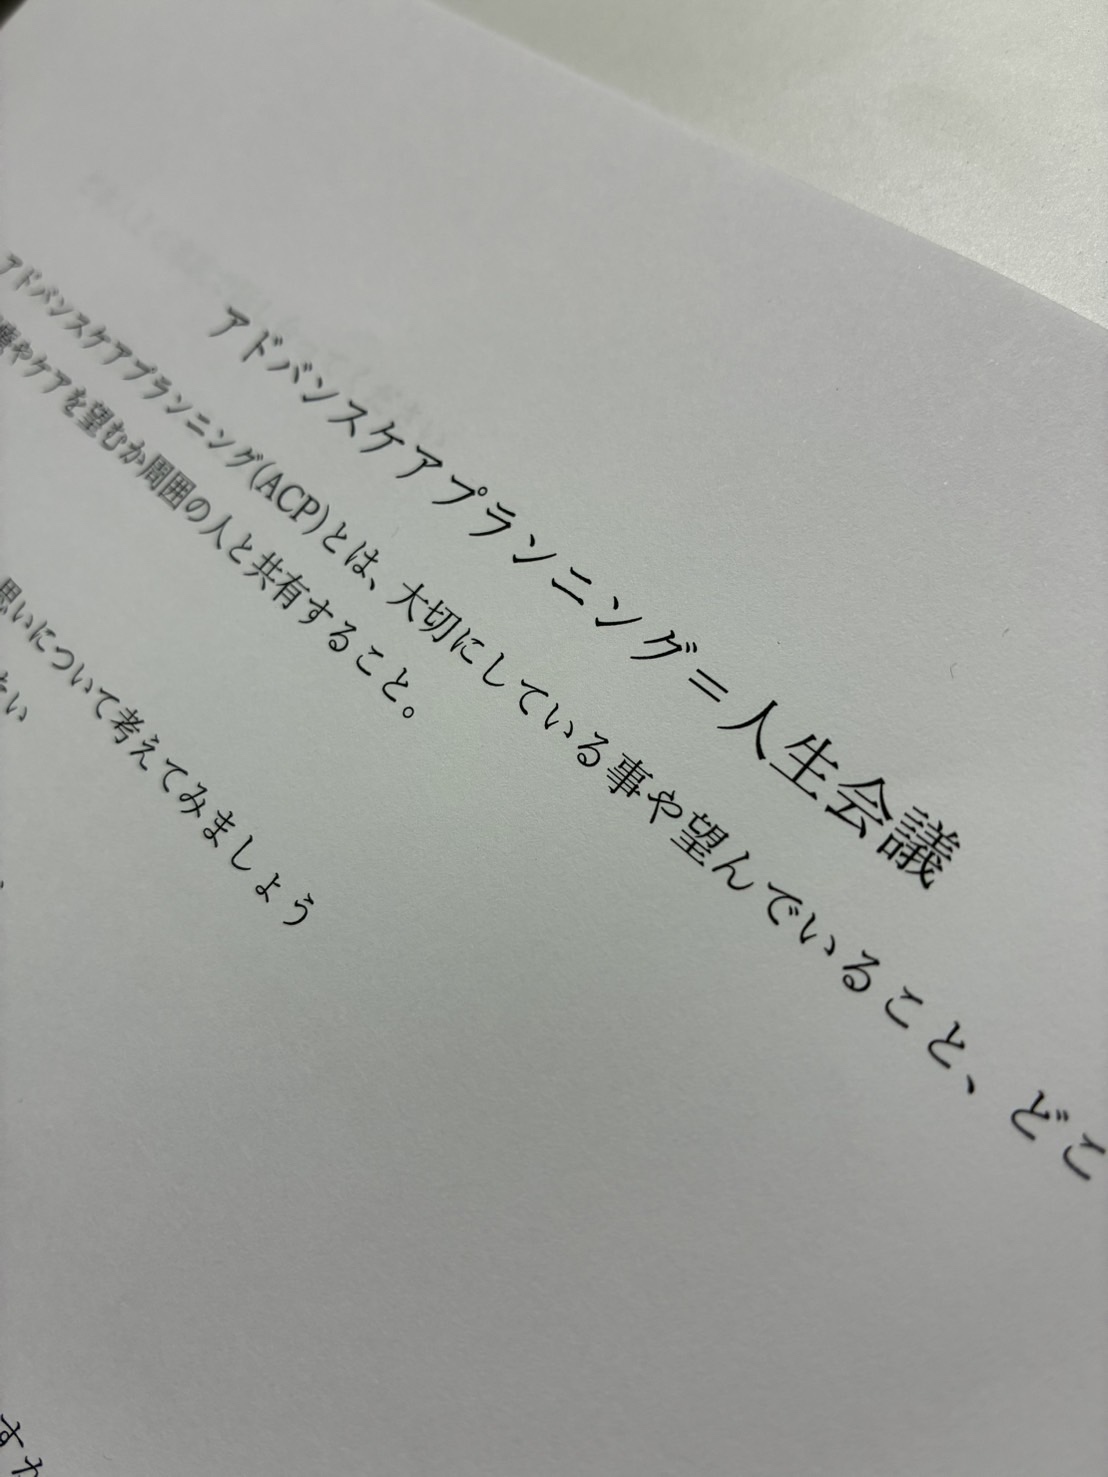 アドバンスケアプランニング=人生会議
アドバンスケアプランニング(ACP)とは、大切にしている事や望んでいること、どこ
療やケアを望むか周囲の人と共有すること。
思いについて考えてみましょう
たい
すか